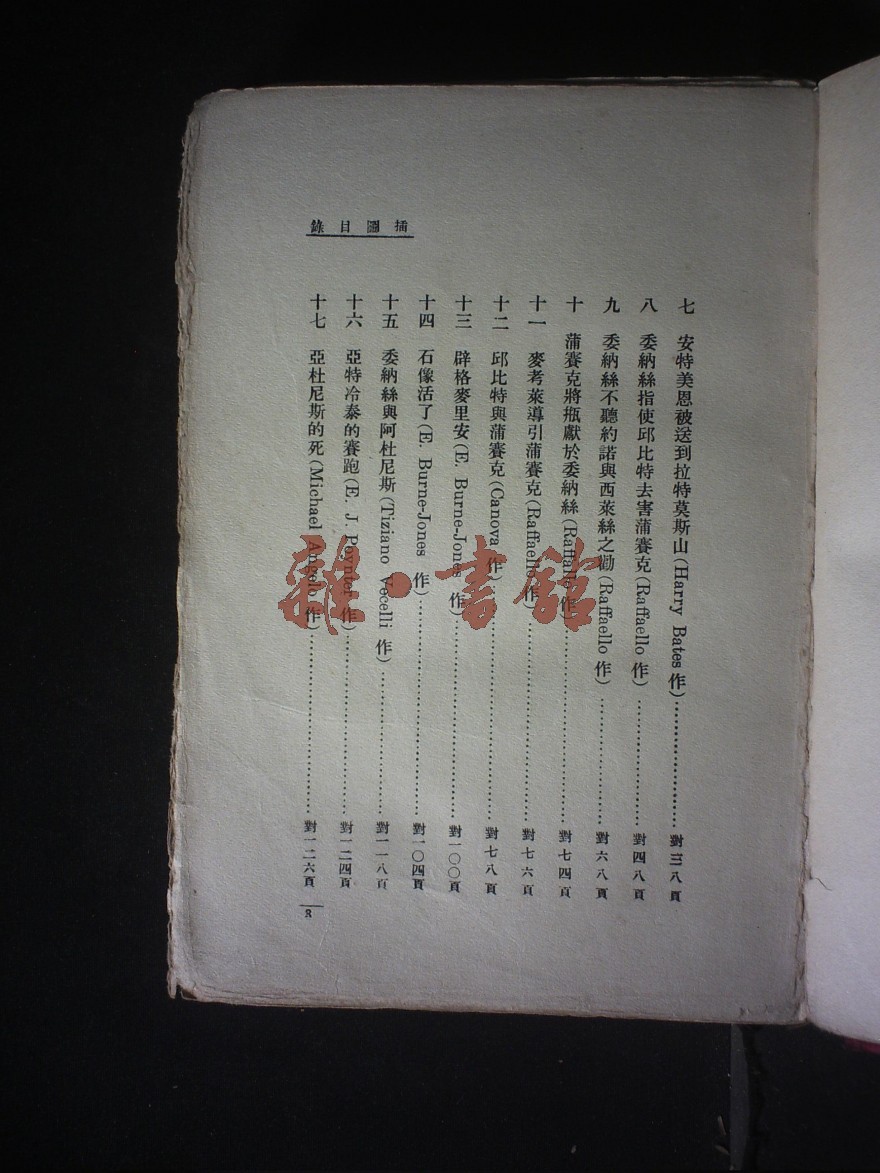 插圖目錄
七 安特美恩被送到拉特莫斯山(Harry Bates 作)……………………對三八頁
八 委納絲指使邱比特去害蒲賽克(Raffaello 作)……………………對四八頁
九 委納絲不聽約諾與西萊絲之勸(Raffaello 作)……………………對六八頁
十 蒲賽克將瓶獻於委納絲(Raffallo 作)……………………對七四頁
十一 麥考萊導引蒲賽克(Raffaello 作)……………………對七六頁
十二 邱比特與蒲賽克(Canova 作)……………………對七八頁
十三 辟格麥里安(E. Burne-Jones 作)……………………對一〇〇頁
十四 石像活了(E. Burne-Jones 作)……………………對一〇四頁
十五 委納絲與阿杜尼斯(Tiziano Vecelli 作)……………………對一一八頁
十六 亞特冷泰的賽跑(E. J. Poynter 作)……………………對一二四頁
十七 亞杜尼斯的死(Michael Angelo 作)……………………對一二六頁
3
雜·書館